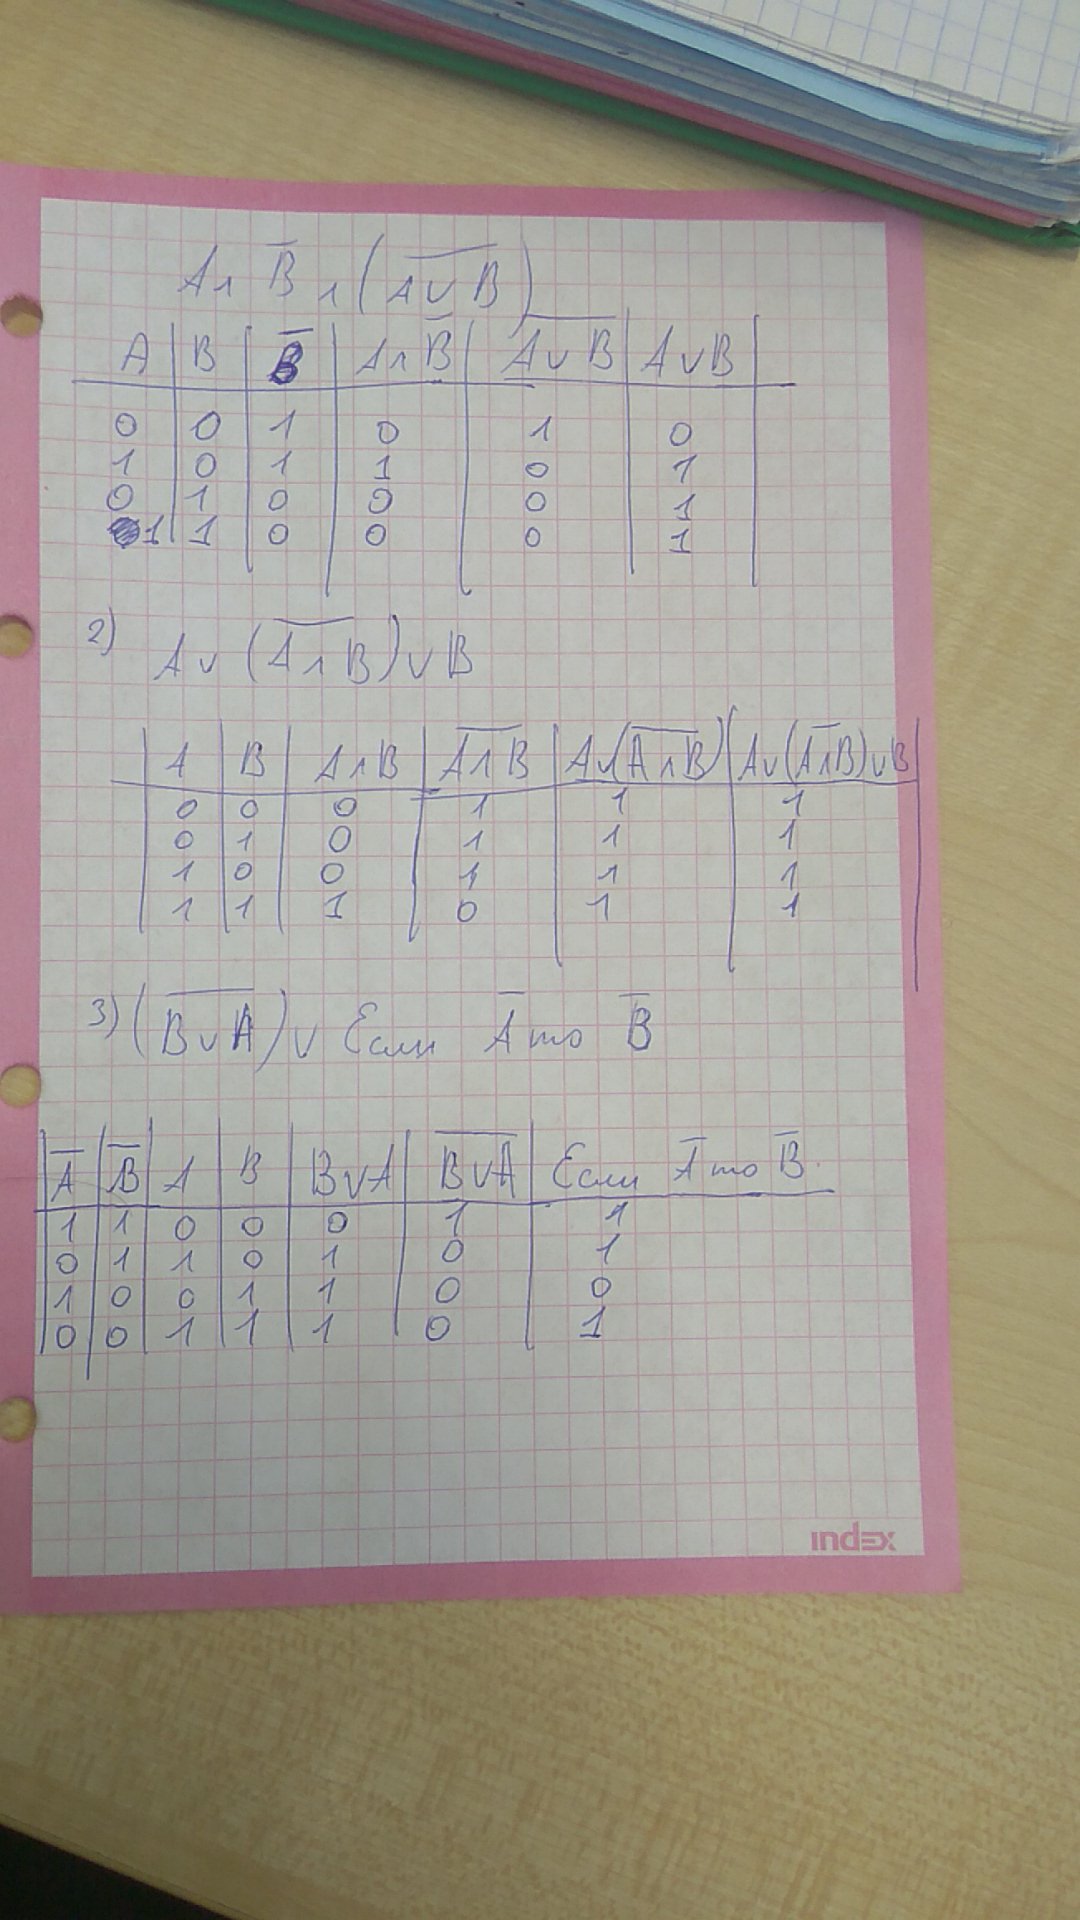 A ∧ B̅ ∧ (A̅ ∨ B̅)
A | B | B̅ | A ∧ B̅ | A̅ ∨ B̅ | A ∨ B
0 | 0 | 1 | 0 | 1 | 0
1 | 0 | 1 | 1 | 0 | 1
0 | 1 | 0 | 0 | 0 | 1
1 | 1 | 0 | 0 | 0 | 1
2) A ∨ (A̅ ∧̅ B̅) ∨ B
A | B | A ∧ B | A̅ ∧̅ B̅ | A ∨ (A̅ ∧̅ B̅) | A ∨ (A̅ ∧̅ B̅) ∨ B
0 | 0 | 0 | 1 | 1 | 1
0 | 1 | 0 | 1 | 1 | 1
1 | 0 | 0 | 1 | 1 | 1
1 | 1 | 1 | 0 | 1 | 1
3) (B̅ ∨̅ A̅) ∨ Если A̅ то B̅
A̅ | B̅ | A | B | B ∨ A | B̅ ∨̅ A̅ | Если A̅ то B̅.
1 | 1 | 0 | 0 | 0 | 1 | 1
0 | 1 | 1 | 0 | 1 | 0 | 1
1 | 0 | 0 | 1 | 1 | 0 | 0
0 | 0 | 1 | 1 | 1 | 0 | 1
index